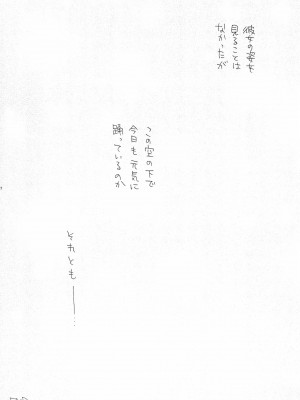 彼女の姿を
見ることは
なかったが
この空の下で
今日も元気に
踊っているのか
それとも――…